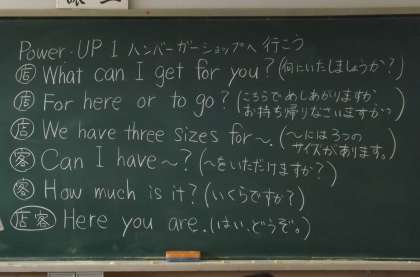 Power・UP 1 ハンバーガーショップへ行こう
店 What can I get for you? (何にいたしましょうか?)
店 For here or to go? (こちらでめしあがりますか
お持ち帰りなさいますか?)
店 We have three sizes for~. (~には3つの
サイズがあります。)
客 Can I have~? (~をいただけますか?)
客 How much is it? (いくらですか?)
店客 Here you are. (はい、どうぞ。)